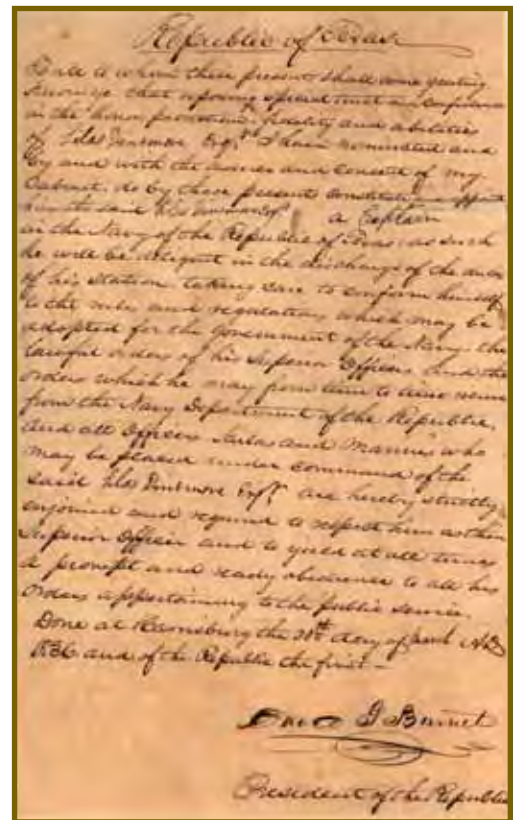 Republic of Texas
To all to whom these present shall come greeting
Know ye that reposing special trust and confidence
in the honor, patriotism, fidelity and abilities
of Silas Dinsmore Esqr. I have nominated and
by and with the advice and consent of my
Cabinet, do by these present constitute & appoint
him the said Silas Dinsmore Esqr a Captain
in the Navy of the Republic of Texas as such
he will be diligent in the discharge of the duties
of his station taking care to conform himself
to the rules and regulations which may be
adopted for the government of the Navy. the
lawful orders of his Superior Officers and the
orders which he may from time to time receive
from the Navy Department of the Republic,
And all Officers Sailors and Marines who
may be placed under command of the
said Silas Dinsmore Esqr. are hereby strictly
enjoined and required to respect him as their
Superior Officer and to yield at all times
a prompt and ready obedience to all his
orders appertaining to the public service.
Done at Harrisburg the day of March AD
1836 and of the Republic the first—
David G Burnet
President of the Republic